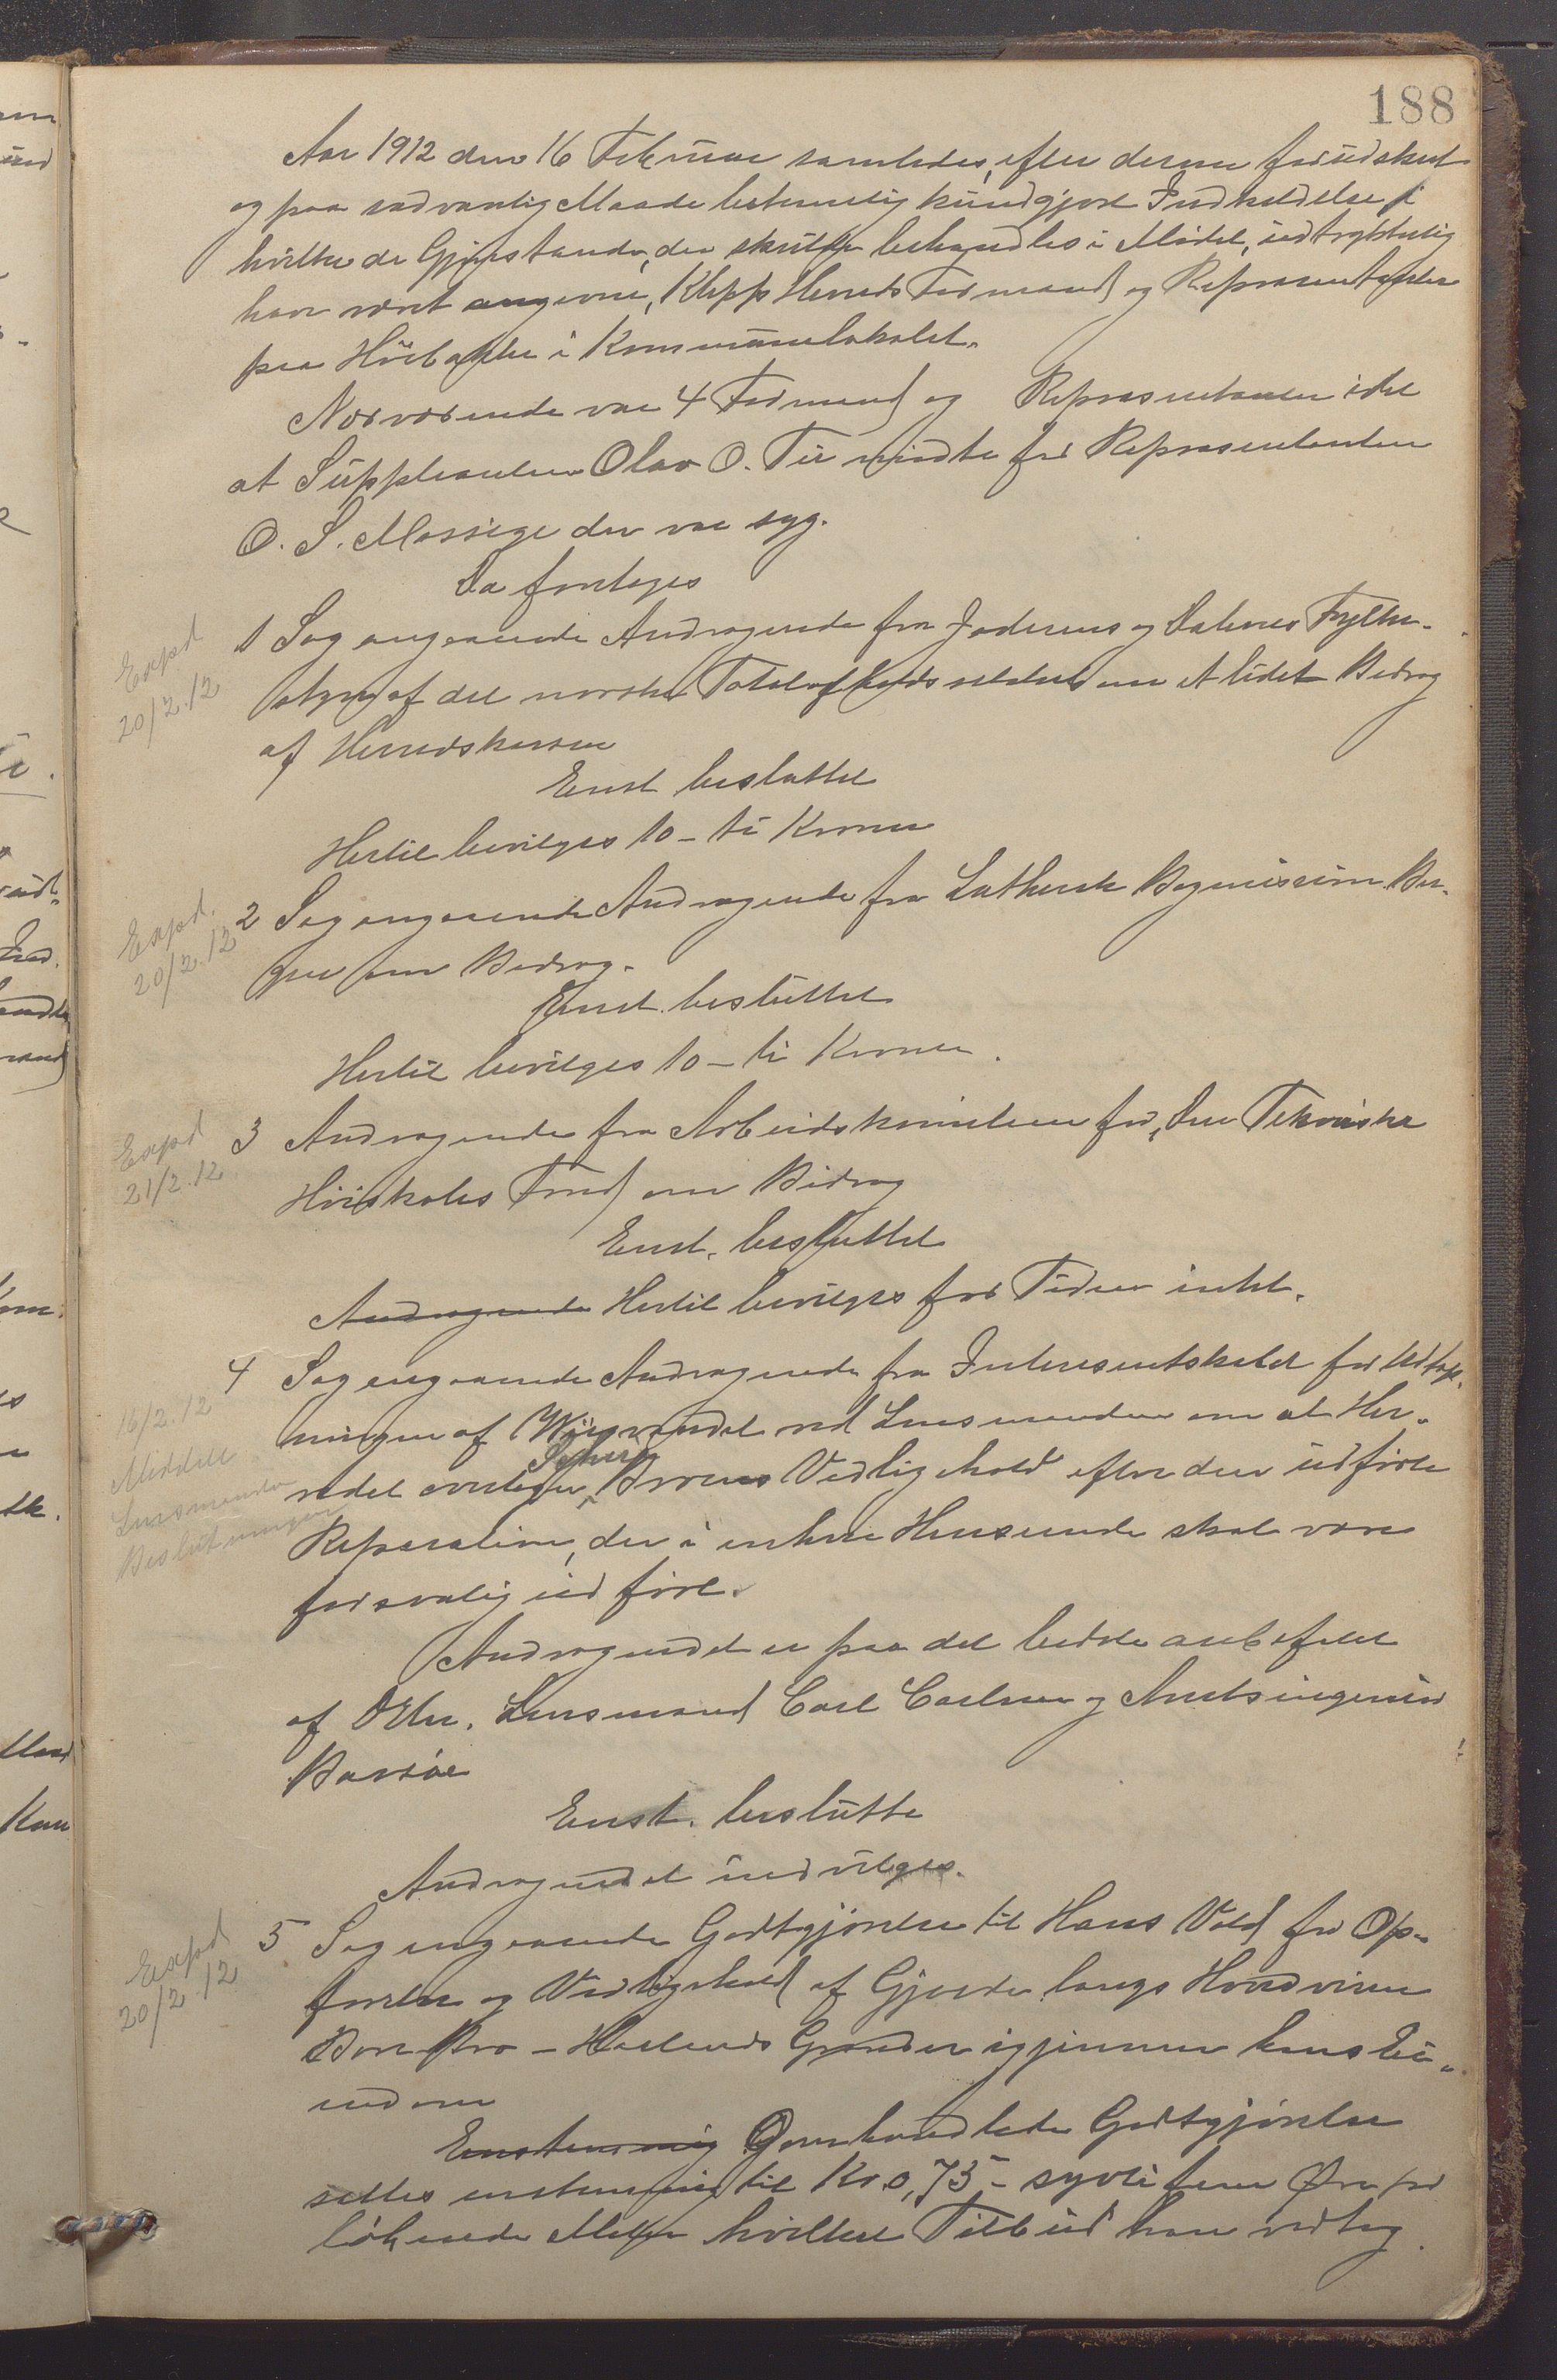 188
Aar 1912 den 16 Februar samledes, efter derom forudskut
og paa sædvanlig Maade betimelig kundgjort Indkaldelse i
hvilke de Gjenstande, der skulle behandles i Mødet, udtrykkelig
have været angivne, Klepp Herreds Formænd og Repræsentanter
paa Hörbakke i Kommunelokalet.
Nærværende var 4 Formænd og Repræsentanter idet
at Suppleanten Olav O. Tu mödte for Repræsentanten
O. S. Mossige der var syg.
Da foretoges
Expd
20/2.12
1 Sag angaaende Andragende fra Jæderens og Dalernes Fylke-
styre af det norske Totalafholdsselskab om et lidet Bidrag
af Herredskassen
Enst besluttet
Hertil bevilges 10 – ti Kroner
Expd.
20/2.12
2 Sag angaaende Andragende fra Luthersk Bogmission Ber-
gen om Bidrag.
Enst. besluttet
Hertil bevilges 10 – ti Kroner.
Expd
21/2.12
3 Andragende fra Arbeidskomiteen for, Den Tekniske
Höiskoles Fond om Bidrag
Enst. besluttet
Andragende Hertil bevilges for Tiden intet.
16/2.12
Meddelt
Lensmanden
Beslutningen
4 Sag angaaende Andragende fra Interesentskabet for Udtap-
ningen af Wiigvandet ved Lensmanden om at Her-
redet overtager Broens Vedligehold efter den udförte
Reparation, der i enhver Henseende skal være
forsvarlig udfört.
Andragendet er paa det bedste anbefalet
af Lensmand Carl Carlsen og Amtsingeniör
Enst. beslutte
Andragendet indvilges.
Expd
20/2.12
5 Sag angaaende Godtgjörelse til Hans Vold for Op-
förelse og Vedligehold af Gjerde langs Hovedveien
Bore Bro – Haalands Grænder igjennem hans Ei-
endom
Enstemmig Omhandlede Godtgjörelse
settes enstemmig til Kr. 0,75 – sytti fem Øre pr
löbende Meter hvilket Tilbud han vedtog.